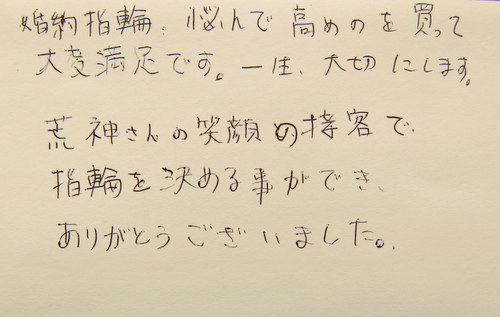 婚約指輪、悩んで高めのを買って
大変満足です。一生、大切にします。
荒神さんの笑顔の接客で
指輪を決める事ができ、
ありがとうございました。